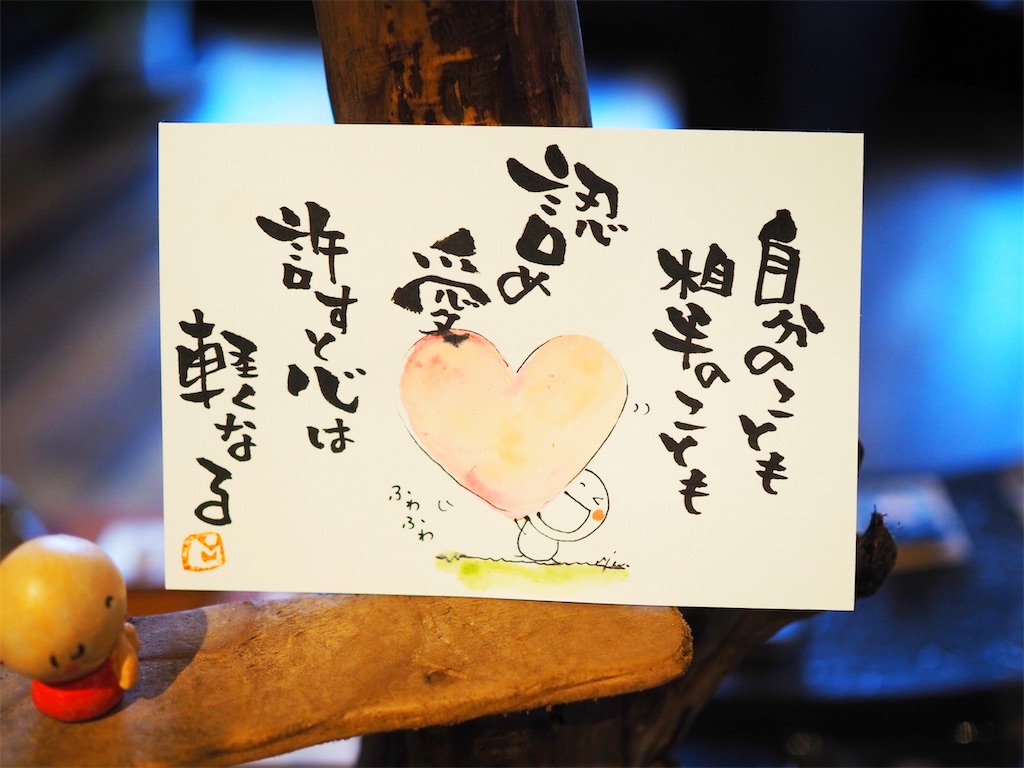 自分のことも
相手のことも
認め
愛
許すと心は
軽くなる
ふわ
ふわ